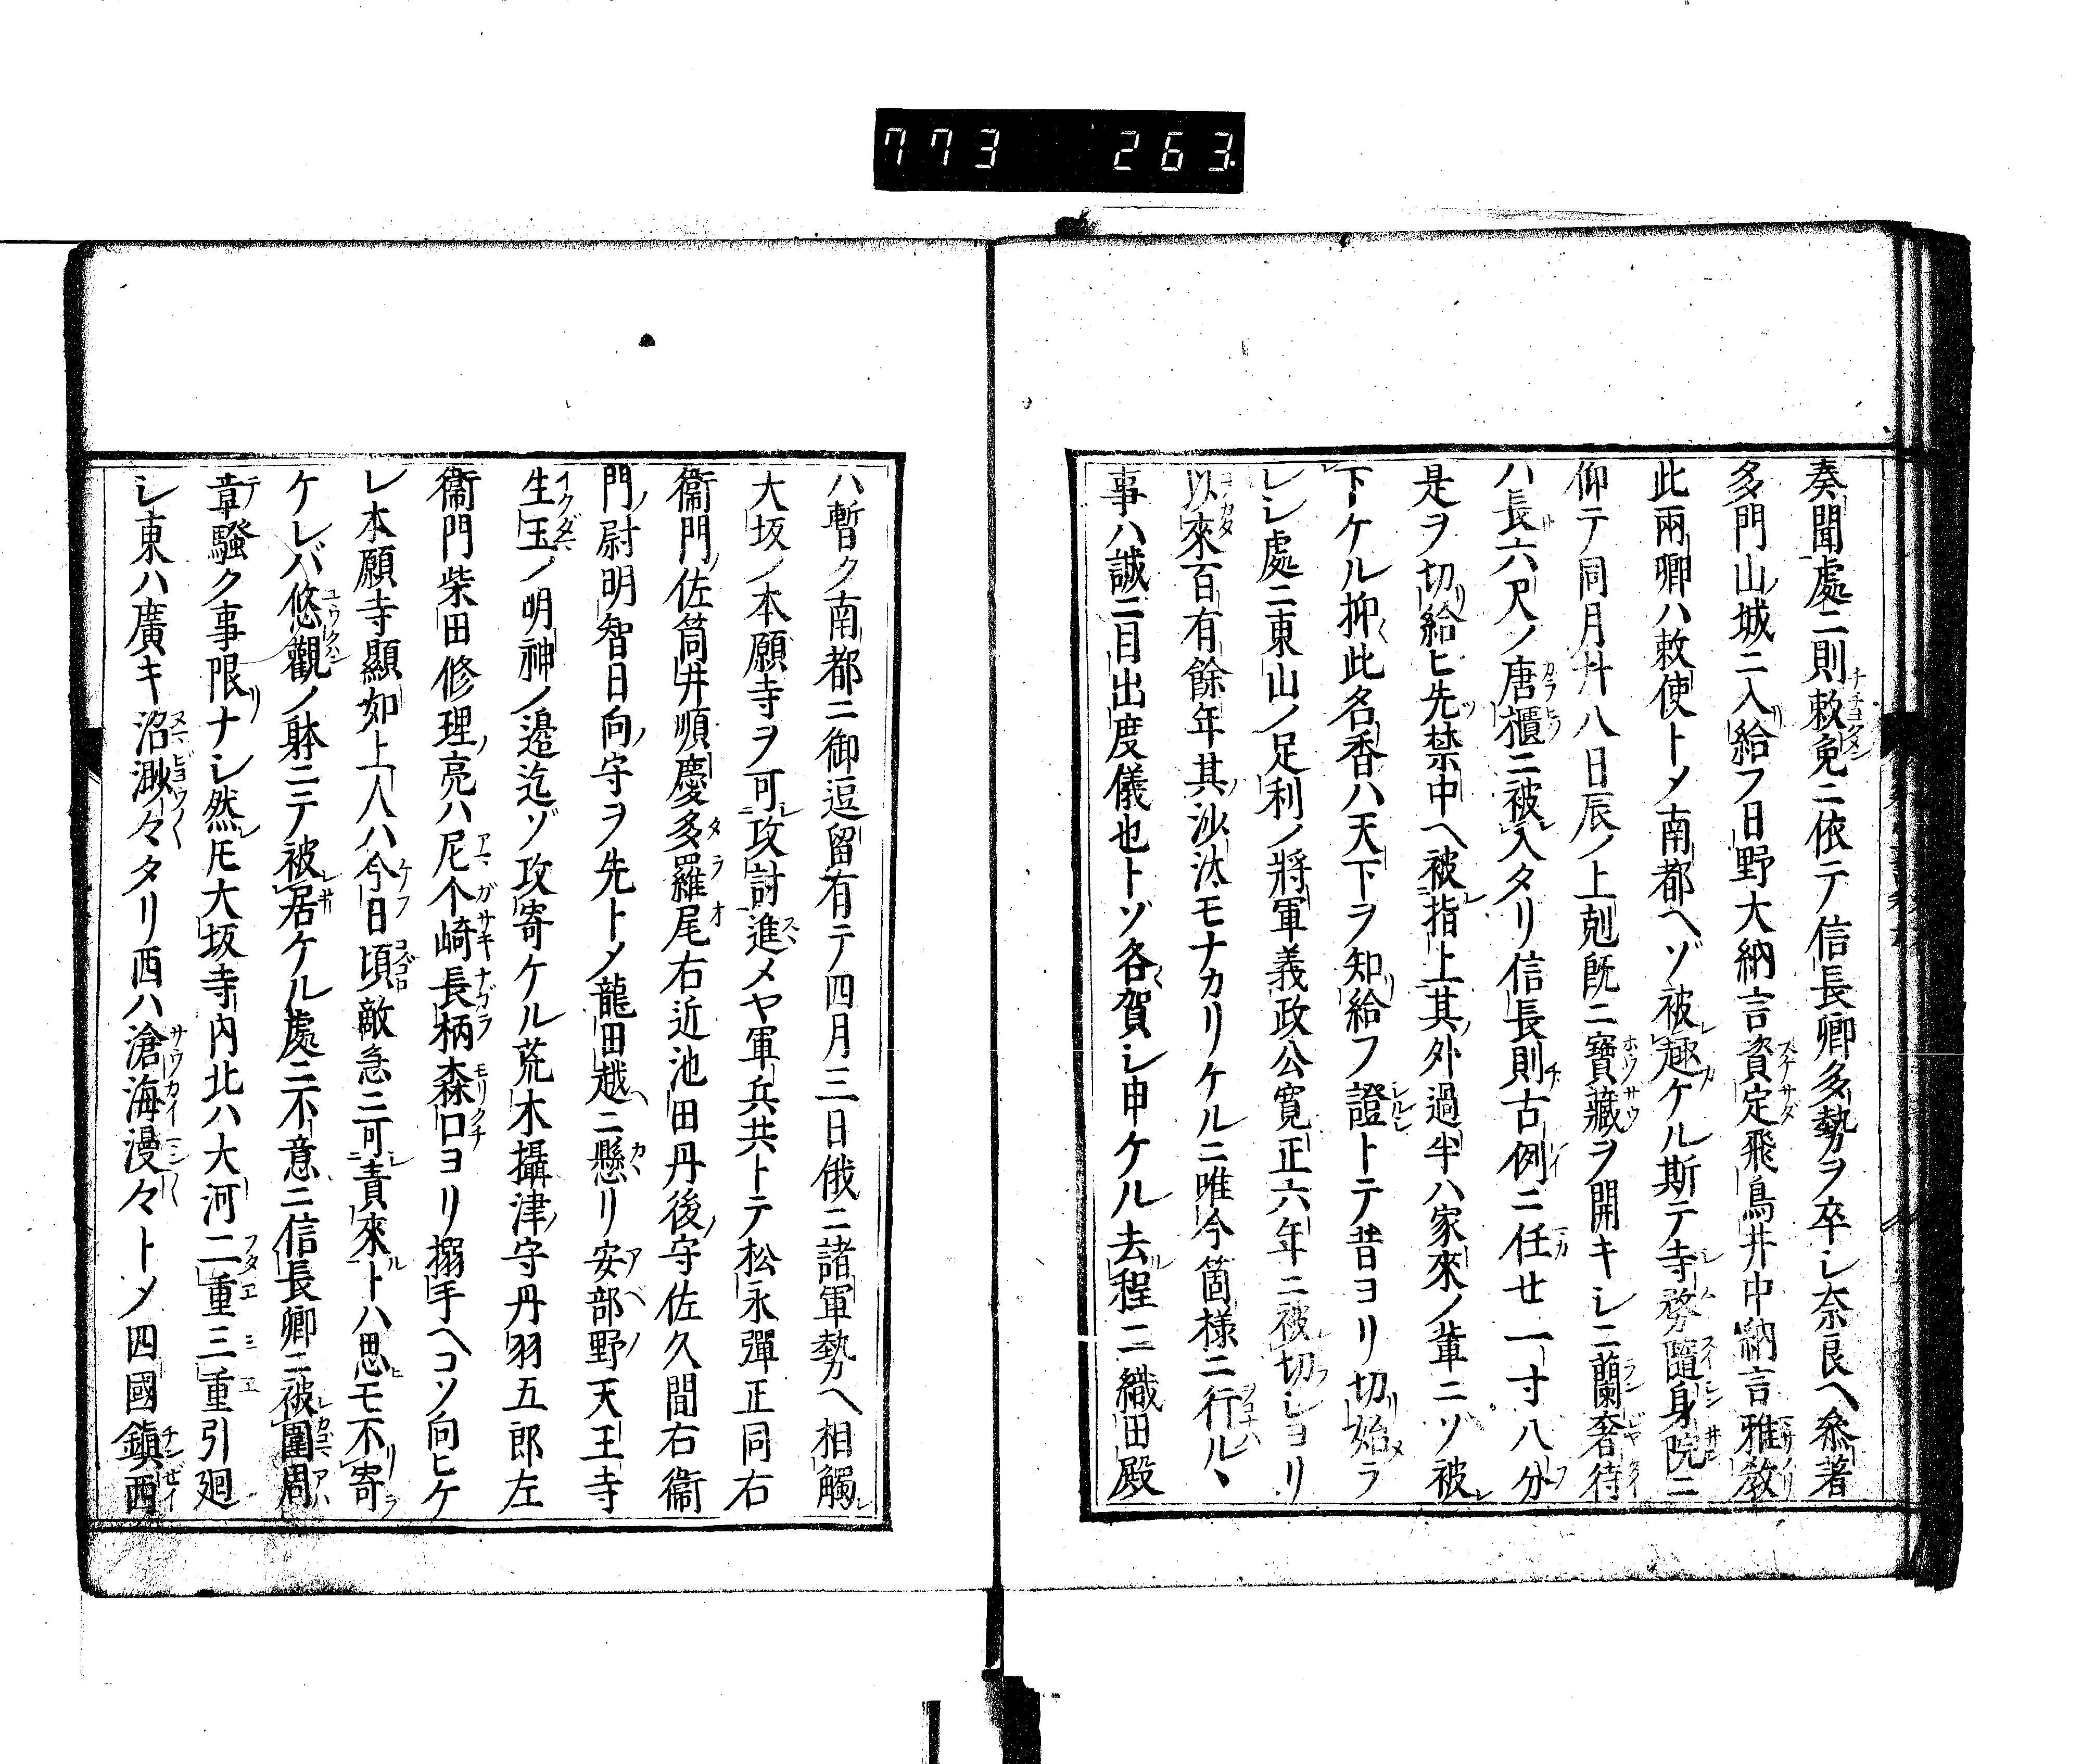 773 263.
奏聞處ニ則敕免ニ依テ信長卿多勢ヲ卒シ奈良ヘ叅著
多門山城ニ入給フ日野大納言資定飛鳥井中納言雅敎
此兩卿ハ敕使トメ南都ヘゾ被趣ケル斯テ寺務隨身院ニ
仰テ同月廾八日辰ノ上剋旣ニ寶藏ヲ開キシニ蘭奢待
ハ長六尺ノ唐櫃ニ被入タリ信長則古例ニ任せ一寸八分
是ヲ切給ヒ先禁中ヘ被指上其外過半ハ家來ノ輩ニゾ被
下ケル抑此名香ハ天下ヲ知給フ證トテ昔ヨリ切始ラ
レシ處ニ東山ノ足利ノ將軍義政公寬正六年ニ被切シヨリ
以來百有餘年其沙汰モナカリケルニ唯今箇樣ニ行ルヽ
事ハ誠ニ目出度儀也トゾ各賀シ申ケル去程ニ織田殿
ハ暫ク南都ニ御逗留有テ四月三日俄ニ諸軍勢ヘ相觸
大坂ノ本願寺ヲ可攻討進メヤ軍兵共トテ松永彈正同右
衞門佐筒井順慶多羅尾右近池田丹後守佐久間右衞
門尉明智日向守ヲ先トメ龍田越ニ懸リ安部野天王寺
生玉ノ明神ノ邉迄ゾ攻寄ケル荒木攝津守丹羽五郎左
衞門柴田修理亮ハ尼个崎長柄森口ヨリ搦手ヘコソ向ヒケ
レ本願寺顯如上人ハ今日頃敵急ニ可責來トハ思モ不寄
ケレバ悠觀ノ躰ニテ被居ケル處ニ不意ニ信長卿ニ被圍周
章騷ク事限ナシ然𪜈大坂寺內北ハ大河二重三重引廻
シ東ハ廣キ沼渺々タリ西ハ滄海漫々トメ四國鎭西